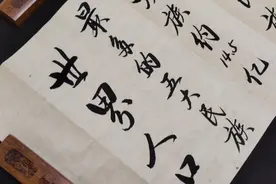 世界人口
最多的五大民族
族约14.5亿